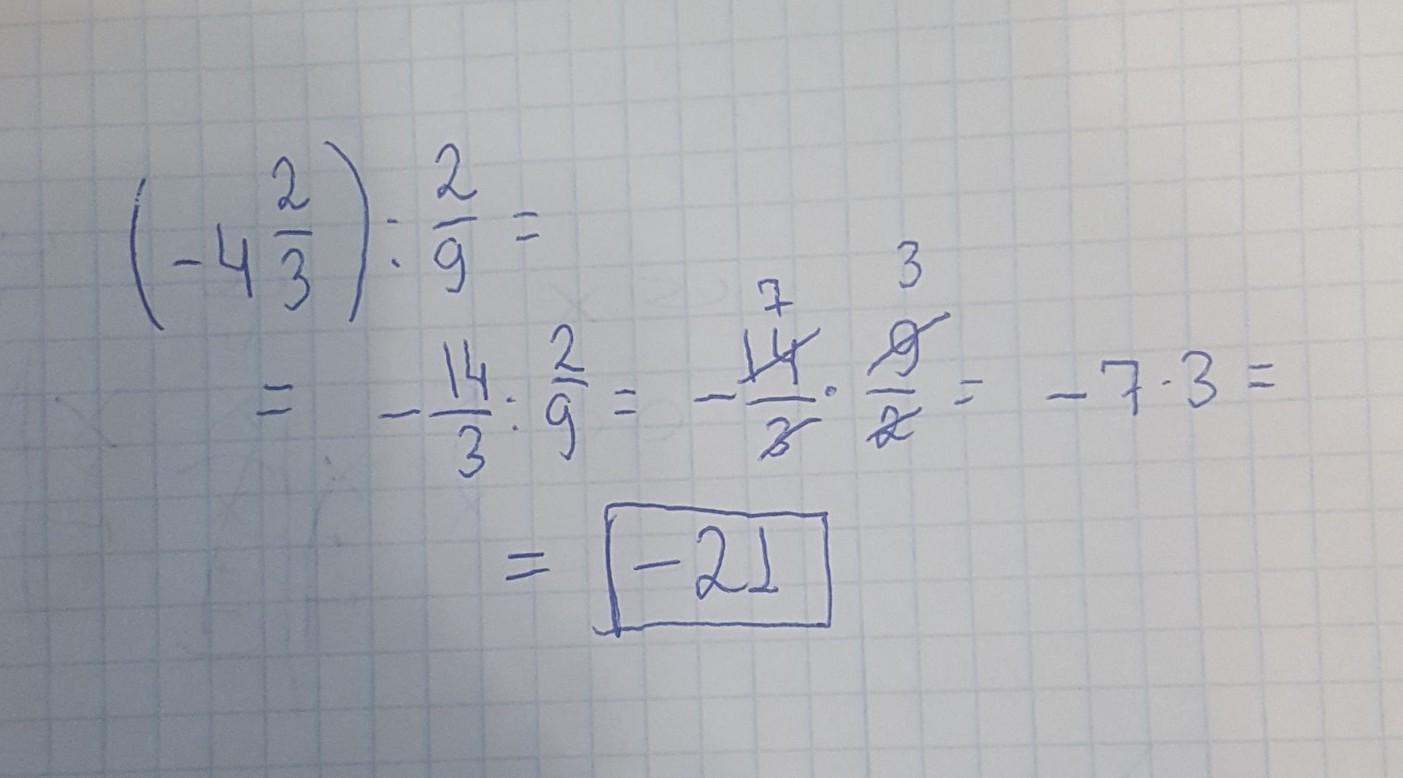 (-4 2/3) : 2/9 =
= -14/3 : 2/9 = -14/3 · 9/2 = -7 · 3 =
7 3
= -21